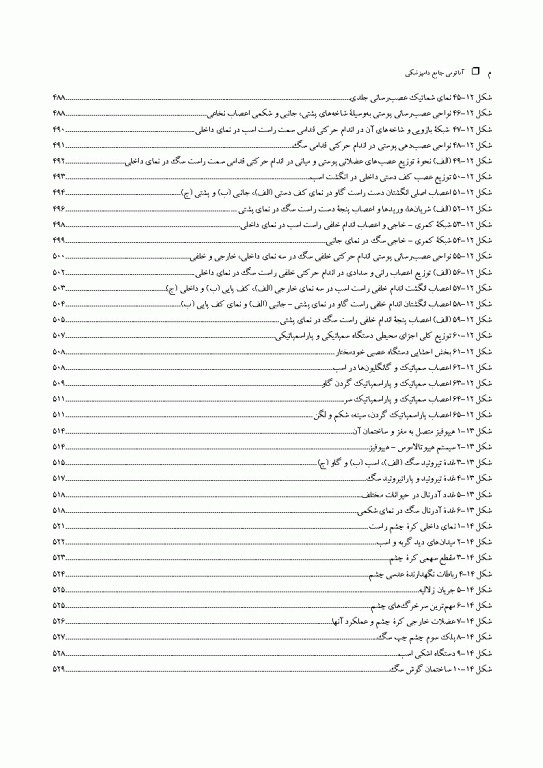 م ❐ آناتومی جامع دامپزشکی
شکل ۱۲-۴۵ نمای شماتیک عصب‌رسانی جلدی................۴۸۸
شکل ۱۲-۴۶ نواحی عصب‌رسانی پوستی به‌وسیلهٔ شاخه‌های پشتی، جانبی و شکمی اعصاب نخاعی................۴۸۸
شکل ۱۲-۴۷ شبکهٔ بازویی و شاخه‌های آن در اندام حرکتی قدامی سمت راست اسب در نمای داخلی................۴۹۰
شکل ۱۲-۴۸ نواحی عصب‌دهی پوستی در اندام حرکتی قدامی سگ................۴۹۱
شکل ۱۲-۴۹ (الف) نحوهٔ توزیع عصب‌های عضلانی پوستی و میانی در اندام حرکتی قدامی سمت راست سگ در نمای داخلی................۴۹۲
شکل ۱۲-۵۰ توزیع عصب کف دستی داخلی در انگشت اسب................۴۹۳
شکل ۱۲-۵۱ اعصاب اصلی انگشتان دست راست گاو در نمای کف دستی (الف)، جانبی (ب) و پشتی (ج)................۴۹۴
شکل ۱۲-۵۲ (الف) شریان‌ها، وریدها و اعصاب پنجهٔ دست راست سگ در نمای پشتی................۴۹۶
شکل ۱۲-۵۳ شبکهٔ کمری - خاجی و اعصاب اندام خلفی راست اسب در نمای داخلی................۴۹۸
شکل ۱۲-۵۴ شبکهٔ کمری - خاجی سگ در نمای جانبی................۴۹۹
شکل ۱۲-۵۵ نواحی عصب‌رسانی پوستی اندام حرکتی خلفی سگ در سه نمای داخلی، خارجی و خلفی................۵۰۰
شکل ۱۲-۵۶ (الف) توزیع اعصاب رانی و سدادی در اندام حرکتی خلفی راست سگ در نمای داخلی................۵۰۲
شکل ۱۲-۵۷ اعصاب انگشت اندام خلفی راست اسب در سه نمای خارجی (الف)، کف پایی (ب) و داخلی (ج)................۵۰۳
شکل ۱۲-۵۸ اعصاب انگشتان اندام خلفی راست گاو در نمای پشتی - جانبی (الف) و نمای کف پایی (ب)................۵۰۴
شکل ۱۲-۵۹ (الف) اعصاب پنجهٔ اندام خلفی راست سگ در نمای پشتی................۵۰۵
شکل ۱۲-۶۰ توزیع کلی اجزای محیطی دستگاه سمپاتیکی و پاراسمپاتیکی................۵۰۷
شکل ۱۲-۶۱ بخش احشایی دستگاه عصبی خودمختار................۵۰۸
شکل ۱۲-۶۲ اعصاب سمپاتیک و گانگلیون‌ها در اسب................۵۰۸
شکل ۱۲-۶۳ اعصاب سمپاتیک و پاراسمپاتیک گردن گاو................۵۰۹
شکل ۱۲-۶۴ اعصاب سمپاتیک و پاراسمپاتیک سر................۵۱۱
شکل ۱۲-۶۵ اعصاب پاراسمپاتیک گردن، سینه، شکم و لگن................۵۱۱
شکل ۱۳-۱ هیپوفیز متصل به مغز و ساختمان آن................۵۱۴
شکل ۱۳-۲ سیستم هیپوتالاموس - هیپوفیز................۵۱۴
شکل ۱۳-۳ غدهٔ تیروئید سگ (الف)، اسب (ب) و گاو (ج)................۵۱۵
شکل ۱۳-۴ غدهٔ تیروئید و پاراتیروئید سگ................۵۱۷
شکل ۱۳-۵ غدد آدرنال در حیوانات مختلف................۵۱۸
شکل ۱۳-۶ غدهٔ آدرنال سگ در نمای شکمی................۵۱۸
شکل ۱۴-۱ نمای داخلی کرهٔ چشم راست................۵۲۱
شکل ۱۴-۲ میدان‌های دید گربه و اسب................۵۲۲
شکل ۱۴-۳ مقطع سهمی کرهٔ چشم................۵۲۳
شکل ۱۴-۴ رباطات نگهدارندهٔ عدسی چشم................۵۲۴
شکل ۱۴-۵ جریان زلالیه................۵۲۵
شکل ۱۴-۶ مهم‌ترین سرخرگ‌های چشم................۵۲۵
شکل ۱۴-۷ عضلات خارجی کرهٔ چشم و عملکرد آنها................۵۲۶
شکل ۱۴-۸ پلک سوم چشم چپ سگ................۵۲۷
شکل ۱۴-۹ دستگاه اشکی اسب................۵۲۸
شکل ۱۴-۱۰ ساختمان گوش سگ................۵۲۹